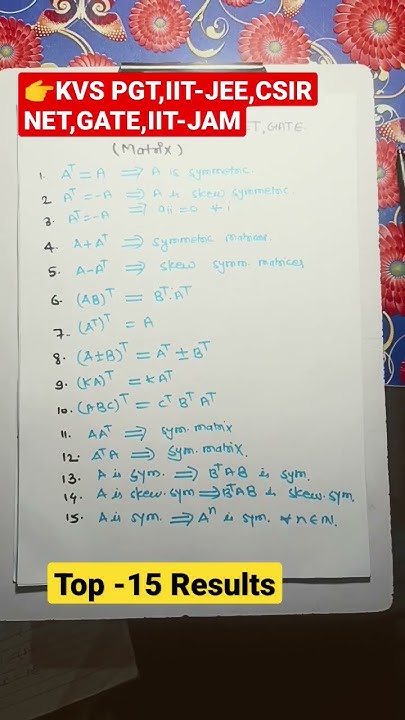 👉KVS PGT,IIT-JEE,CSIR
NET,GATE,IIT-JAM
ET, GATE.
(Matrix)
1. Aᵀ = A ⟹ A is symmetric.
2 Aᵀ = -A ⟹ A is skew symmetric.
3. Aᵀ = -A ⟹ aii = 0 ∀ i
4. A + Aᵀ ⟹ symmetric matrices.
5. A - Aᵀ ⟹ skew symm. matrices
6. (AB)ᵀ = Bᵀ.Aᵀ
7. (Aᵀ)ᵀ = A
8. (A ± B)ᵀ = Aᵀ ± Bᵀ
9. (KA)ᵀ = KAᵀ
10. (ABC)ᵀ = Cᵀ Bᵀ Aᵀ
11. AAᵀ ⟹ sym. matrix
12. AᵀA ⟹ sym. matrix.
13. A is sym. ⟹ BᵀAB is sym.
14. A is skew. sym ⟹ BᵀAB is skew. sym.
15. A is sym. ⟹ Aⁿ is sym. ∀ n ∈ IN.
Top -15 Results